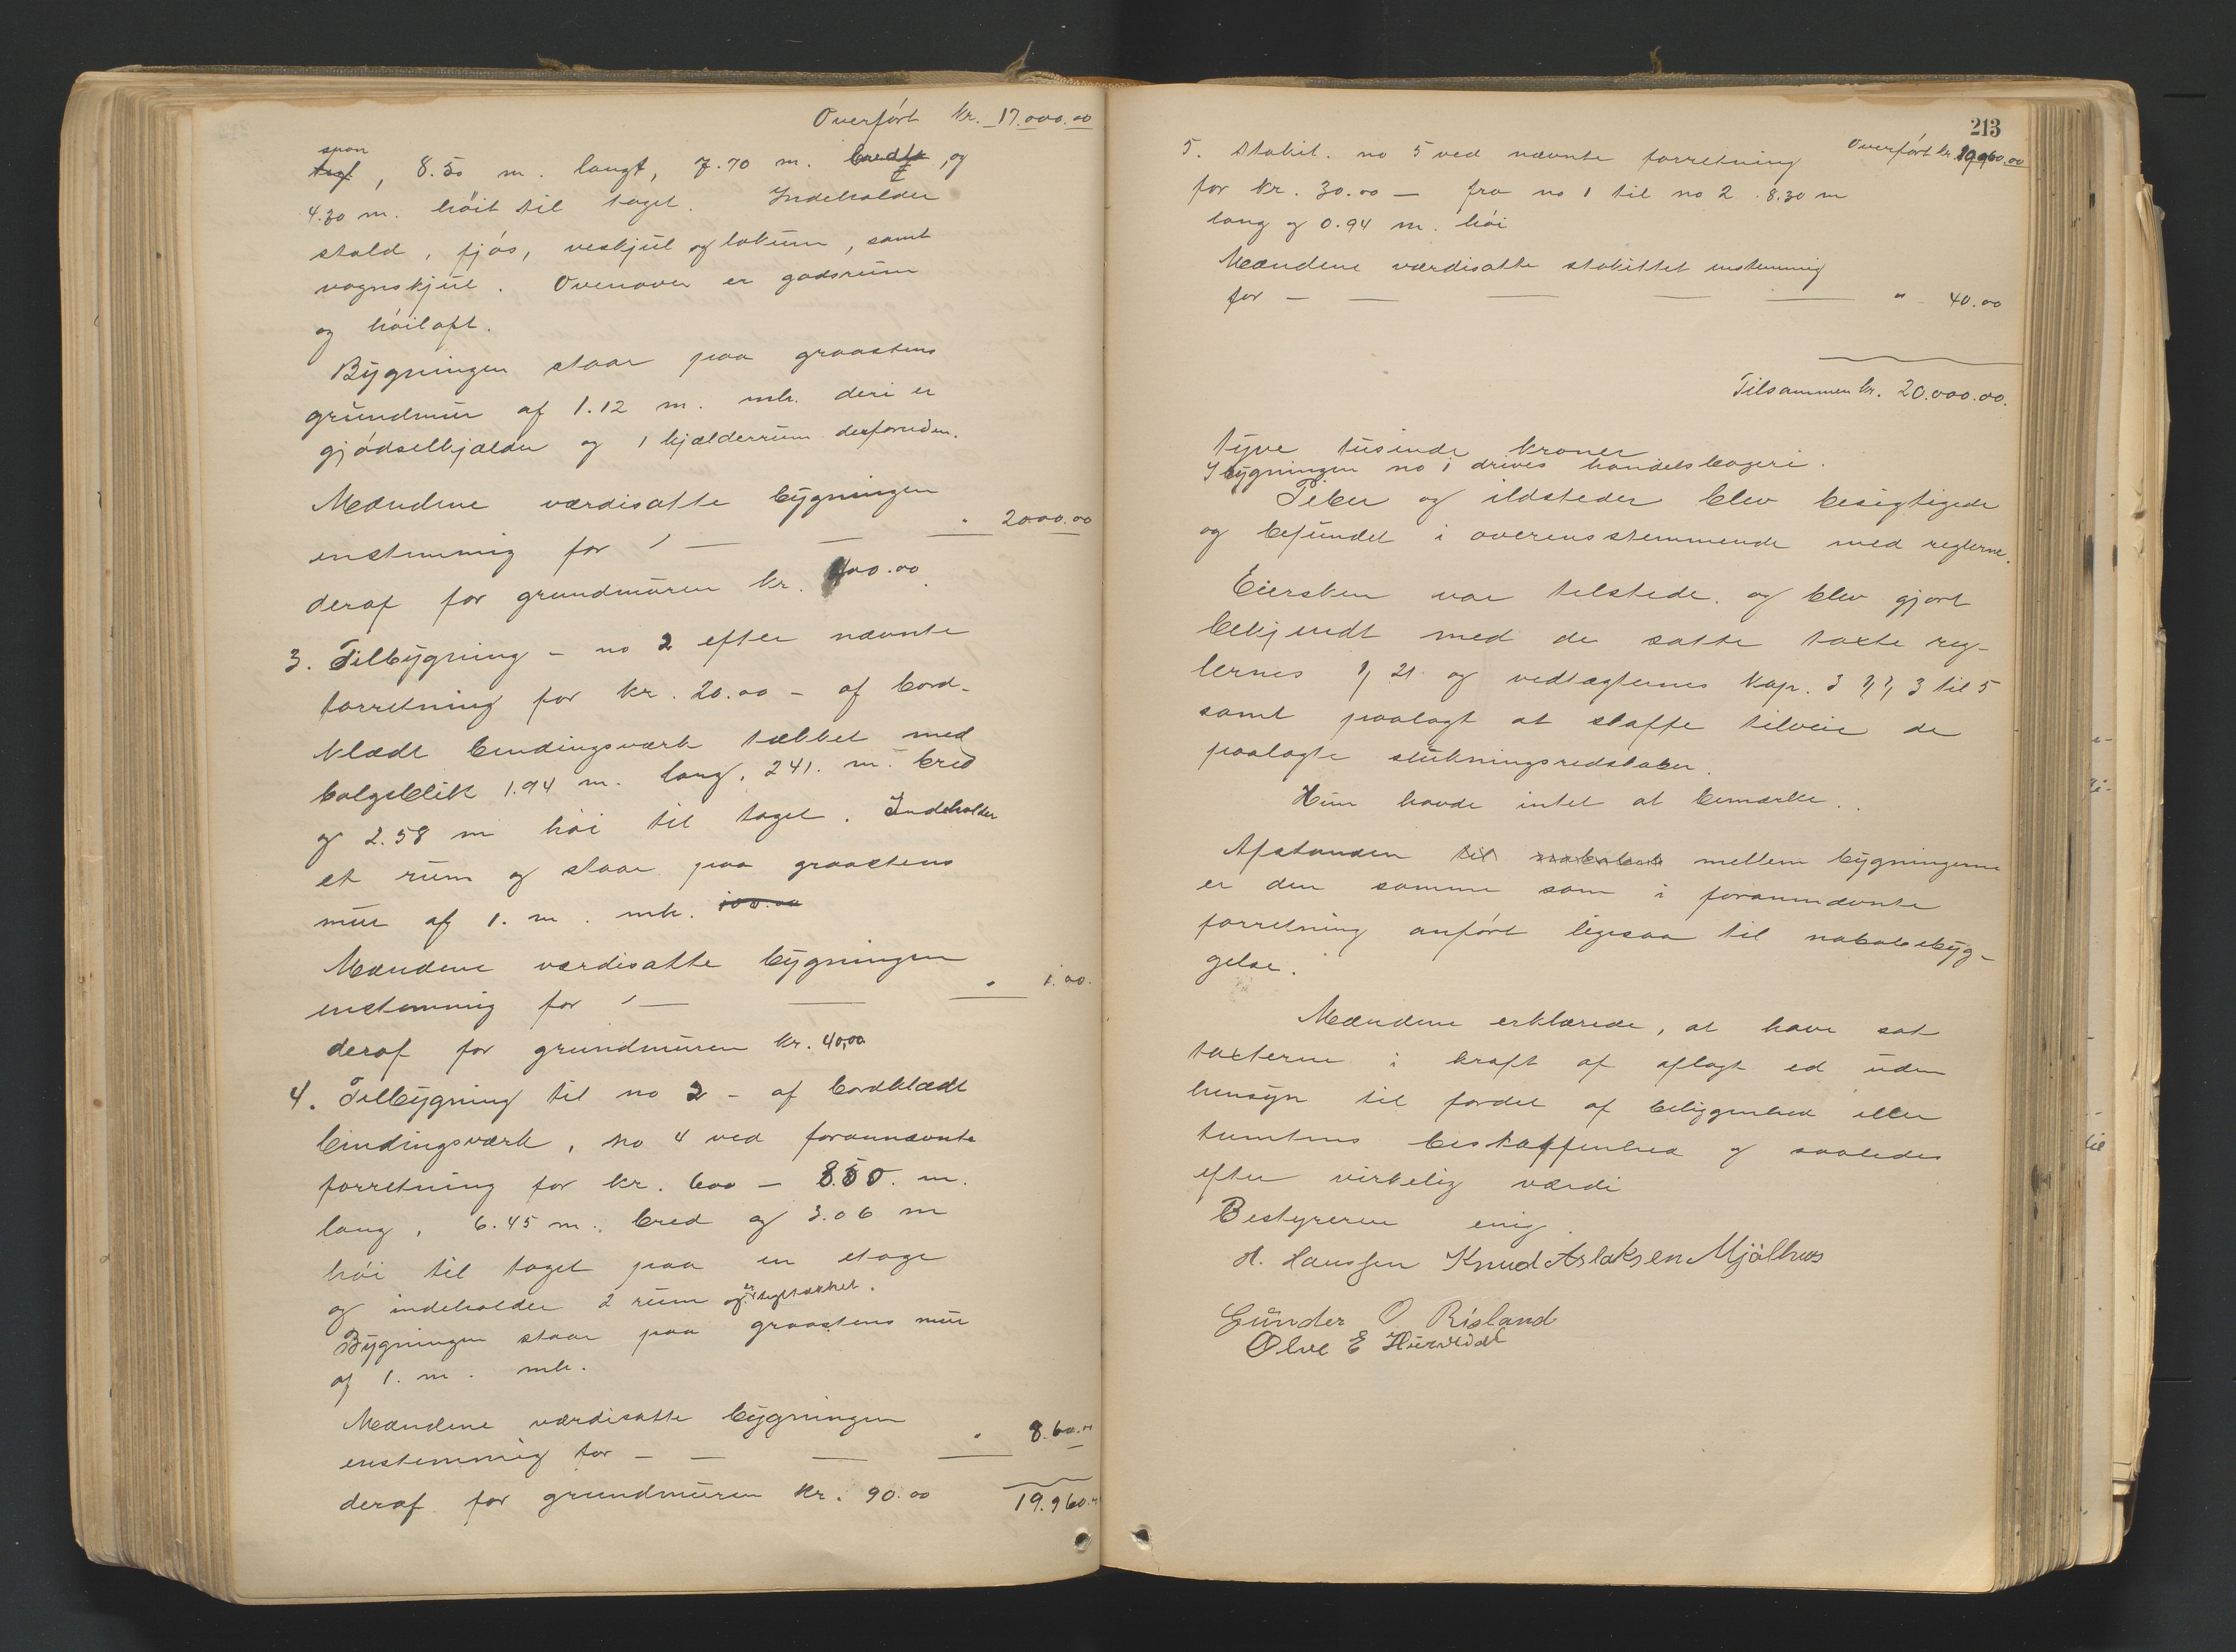 Overført kr. 17.000.00
spon
, 8.50 m. langt, 7.70 m. bredt, og
4.30 m. høit til taget. Indeholder
stald, fjøs, veskjul og lokum, samt
vognskjul. Ovenover er godsrum
og høiloft.
Bygningen staar paa graastens
grundmur af 1.12 m. mh. deri er
gjødselkjælder og 1 kjælderrum desforuden.
Mændene værdisatte bygningen
enstemmig for — — — " 2000.00
deraf for grundmuren kr. 400.00
3. Tilbygning - no 2 efter nævnte
forretning for kr. 20.00 - af bord-
klædt bindingsværk tækket med
bølgeblik 1.94 m. lang, 241. m. bred
og 2.58 m høi til taget. Indeholder
et rum og staar paa graastens
mur af 1. m. mh. 100.00
Mændene værdisatte bygningen
enstemmig for — — — " 1.00.
deraf for grundmuren kr. 40,00
4. Tilbygning til no 2 - af bordklædt
bindingsværk, no 4 ved forannævnte
forretning for kr. 600 - 8.50. m.
lang, 6.45 m. bred og 3.06 m
høi til taget paa en etage
og indeholder 2 rum og er tegltækket.
Bygningen staar paa graastens mur
af 1. m. mh.
Mændene værdisatte bygningen
enstemmig for — — — — " 860.00
deraf for grundmuren kr. 90.00 19.960.00
213
5. Stakit. no 5 ved nævnte forretning Overført kr. 19960.00
for kr. 30.00 — fra no 1 til no 2 . 8.30 m
lang og 0.94 m. høi
Mændene værdisatte stakittet enstemmig
for — — — — — " 40.00
Tilsammen kr. 20.000.00.
tyve tusinde kroner
I bygningen no 1 drives handelsbageri.
Piber og ildsteder blev besigtigede
og befundet i overensstemmende med reglerne.
Eiersken var tilstede. og blev gjort
bekjendt med de satte taxte reg-
lernes § 21 og vedtægternes kap. 3 §§ 3 til 5
samt paalagt at skaffe tilveie de
paalagte slukningsredskaber.
Hun havde intet at bemærke.
Afstanden til mellem bygningerne
er den samme som i forannævnte
forretning anført ligesaa til nabobebyg-
gelse.
Mændene erklærede, at have sat
taxterne i kraft af aflagt ed uden
hensyn til fordel af beliggenhed eller
tomtens beskaffenhed og saaledes
efter virkelig værdi
Bestyreren enig.
H. Hanssen Knud Aslaksen Mjålhus
Gunder O Risland
Olve E